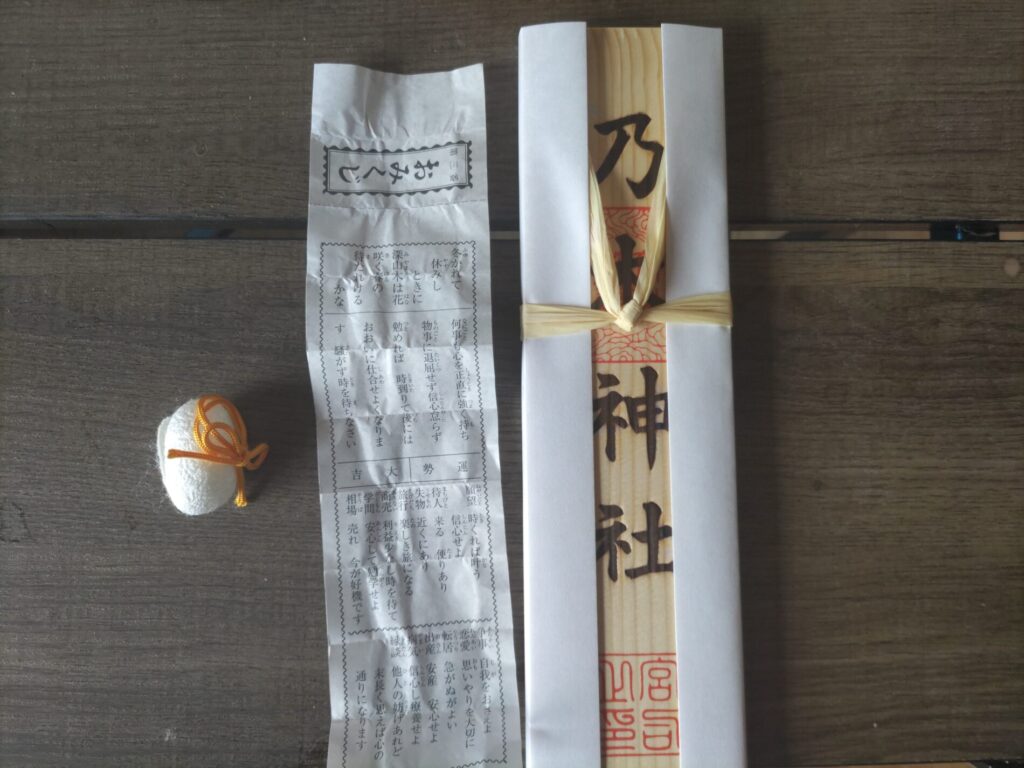 おみくじ
冬かれて
休みし
ときに
深山木は花
咲く春の
待たれける
かな
何事も心を正直に強く持ち
物事に退屈せず信心怠らず
勉めれば 時到りて後には
おおいに仕合せよくなりま
す 騒がず時を待ちなさい
運勢 大吉
願望 時くれば叶う
信心せよ
待人 来る 便りあり
失物 近くにあり
旅行 楽しき旅になる
商売 利益少なし時を待て
学問 安心して勉学せよ
相場 売れ 今が好機です
争事 自我をおさえよ
恋愛 思いやりを大切に
転居 急がぬがよい
出産 安産 安心せよ
病気 信心し療養せよ
縁談 他人の妨げあれど
末長く思えば心の
通りになります
乃木神社
宮司之印